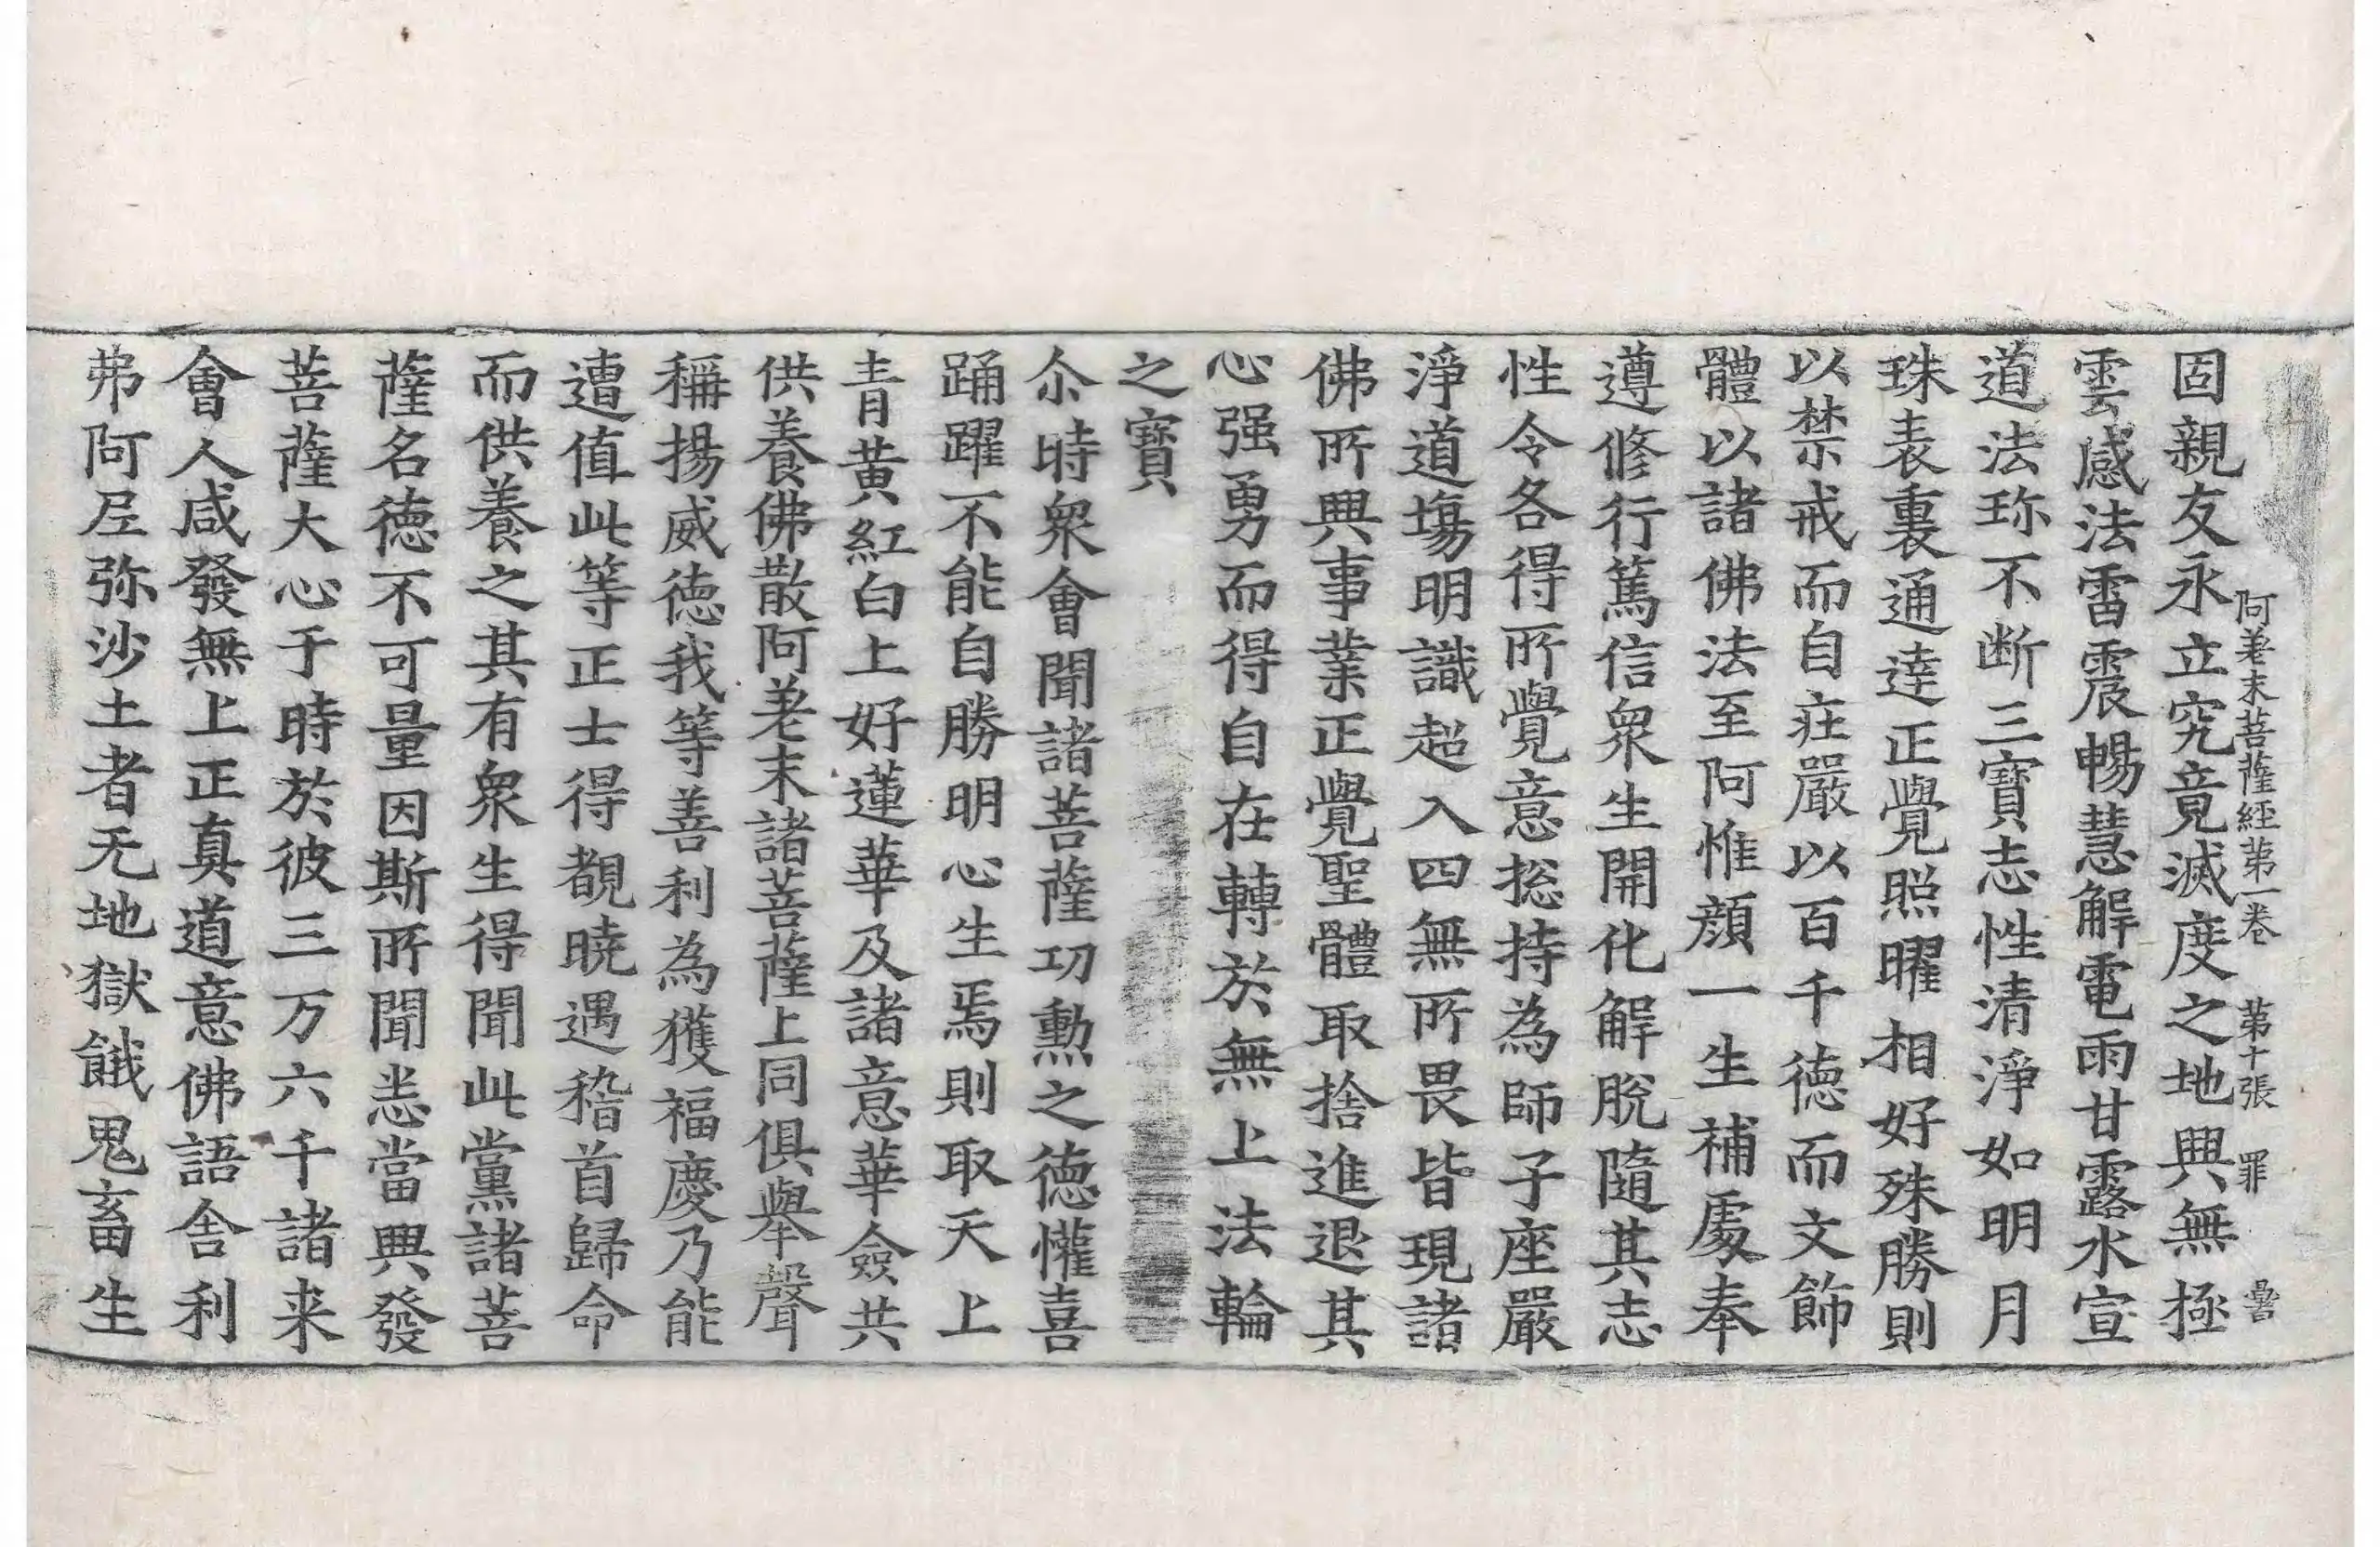 阿差末菩薩經第一卷　第十張　罪
固親友永立究竟滅度之地興無極
雲感法雷震暢慧解電雨甘露水宣
道法珎不断三寶志性清淨如明月
珠表裏通達正覺照曜相好殊勝則
以禁戒而自莊嚴以百千徳而文飾
體以諸佛法至阿惟顔一生補處奉
遵修行篤信衆生開化解脫隨其志
性令各得所覺意捴持為師子座嚴
淨道塲明識超入四無所畏皆現諸
佛所興事業正覺聖體取捨進退其
心强勇而得自在轉於無上法輪
之寶
尒時衆會聞諸菩薩功勲之德懽喜
踊躍不能自勝明心生焉則取天上
青黃紅白上好蓮華及諸意華僉共
供養佛散阿差末諸菩薩上同俱舉聲
稱揚威徳我等善利為獲福慶乃能
遭值此等正士得覩曉遇稽首歸命
而供養之其有衆生得聞此黨諸菩
薩名徳不可量因斯所聞恙當興發
菩薩大心于時於彼三万六千諸来
會人咸發無上正真道意佛語舍利
弗阿𡰱弥沙土者无地獄餓鬼畜生